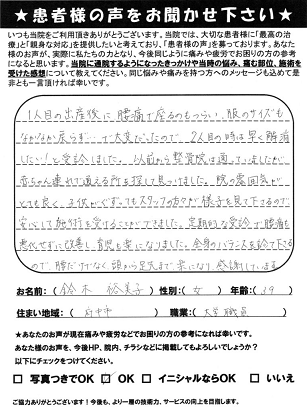 ★患者様の声をお聞かせ下さい★
いつも当院をご利用頂きありがとうございます。当院では、大切な患者様に「最高の治
療」と「親身な対応」を提供したいと考えており、「患者様の声」を募っております。あなた
様のお声が、実際に私たちの力となり、今後同じように痛みや疲労でお困りの方の参考
になると思います。当院に通院するようになったきっかけや当時の悩み、痛む部位、施術を
受けた感想について教えてください。同じ悩みや痛みを持つ方へのメッセージも込めて是
非とも一言頂ければ幸いです。
1人目の出産後に腰痛で座るのもつらい、服のサイズも
なかなか戻らず…で大変だったので、2人目の時は早く解消
したい!と受診しました。以前から整骨院は通っていましたが
赤ちゃん連れで通える所を探して見つけました。院の雰囲気が
とても良く、子供がぐずってもスタッフの方々が様子を見て下さるので
安心して施術を受けることができました。定期的な受診で腰痛も
悪化せずに改善し育児も楽になりました。全身のバランスを診て下さる
ので、腰だけでなく頭から足先まで楽になり感謝しています
お名前：(鈴木 裕美子) 性別：(女) 年齢：(39)
住まい地域：(府中市) 職業：(大学職員)
★あなたのお声が現在痛みや疲労などでお困りの方の参考になれば幸いです。
あなた様のお声を、今後HP、院内、チラシなどに掲載してもよろしいでしょうか?
以下にチェックをつけてください。
□ 写真つきでOK ☑ OK □ イニシャルならOK □ いいえ
ご協力ありがとうございます！今後も、より一層の技術力、サービスの向上を目指します。